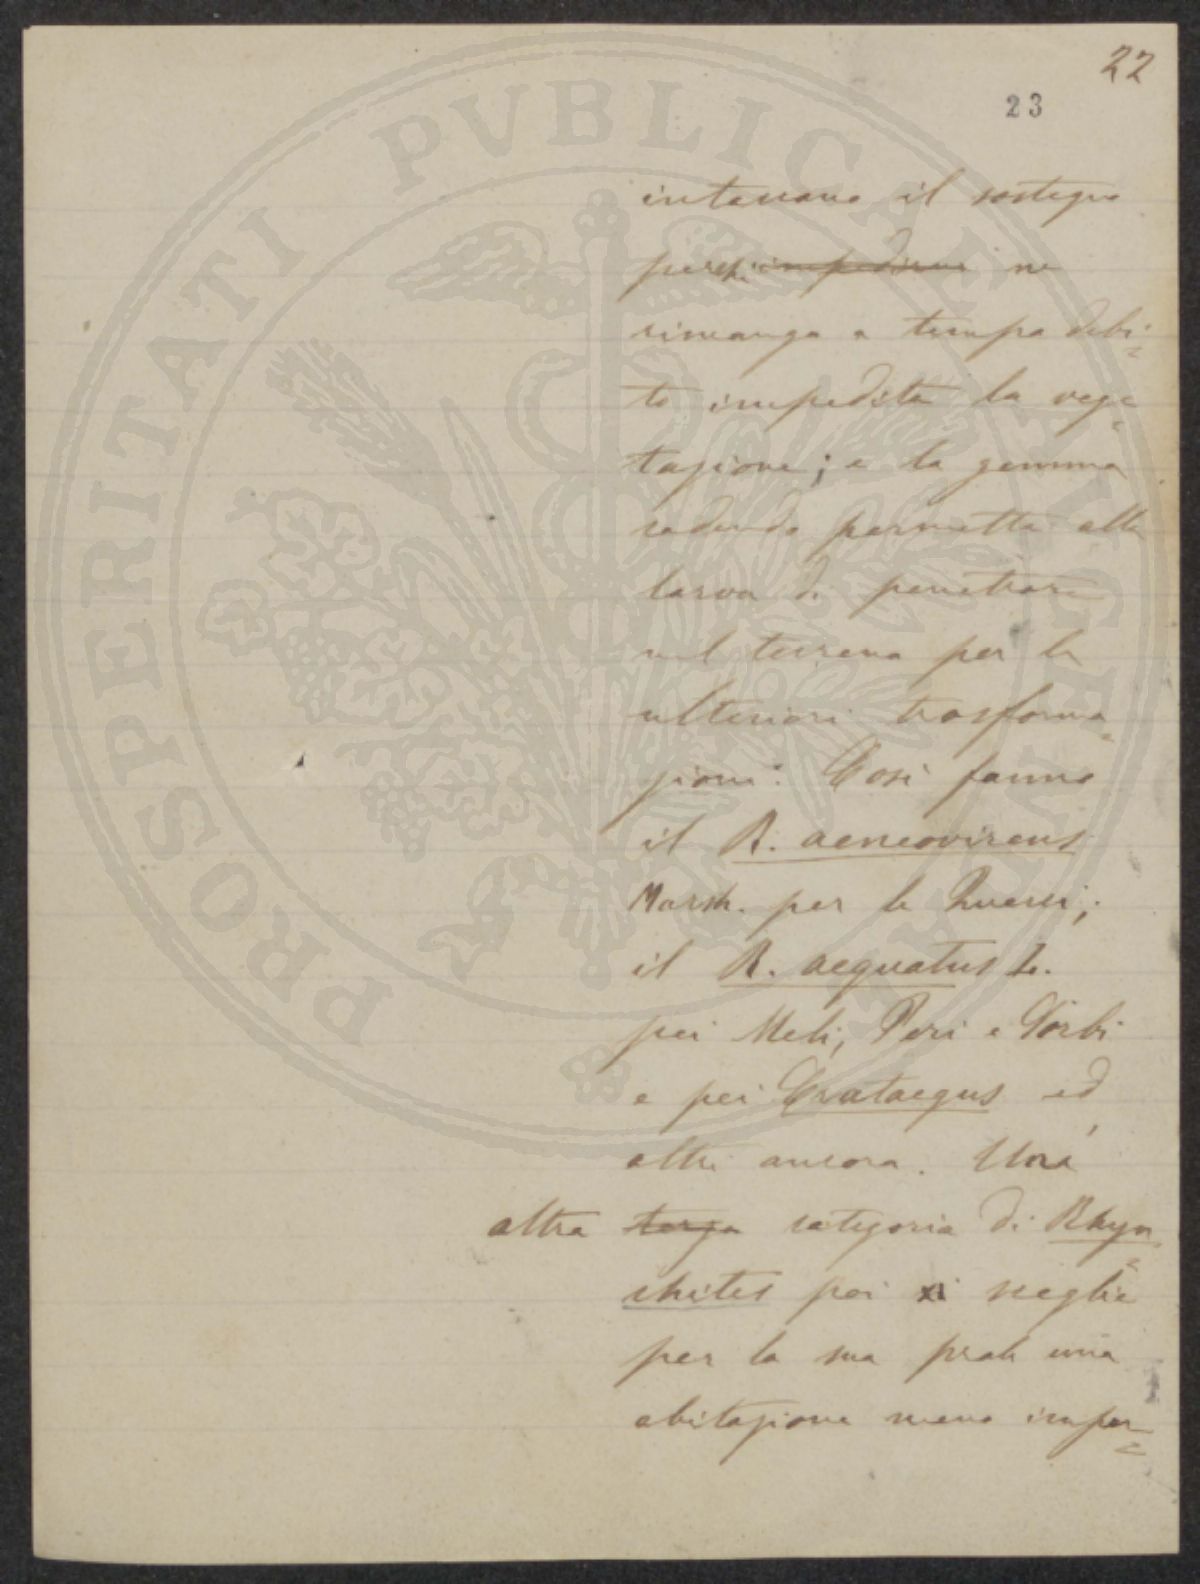 22
23
intaccano il sostegno
perchè impedirne ne
rimanga a tempo debi=
to impedita la vege=
tazione; e la gemma
cadendo permetta alla
larva di penetrare
nel terreno per le
ulteriori trasforma=
zioni. Così fanno
il R. aeneovirens
Marsh. per le Querci;
il R. aequatus L.
pei Meli, Peri e Sorbi
e pei Crataegus ed
altri ancora. Una
altra terza categoria di Rhyn=
chites poi si sceglie
per la sua prole una
abitazione meno imper=
PROSPERITATI PVBLICAE